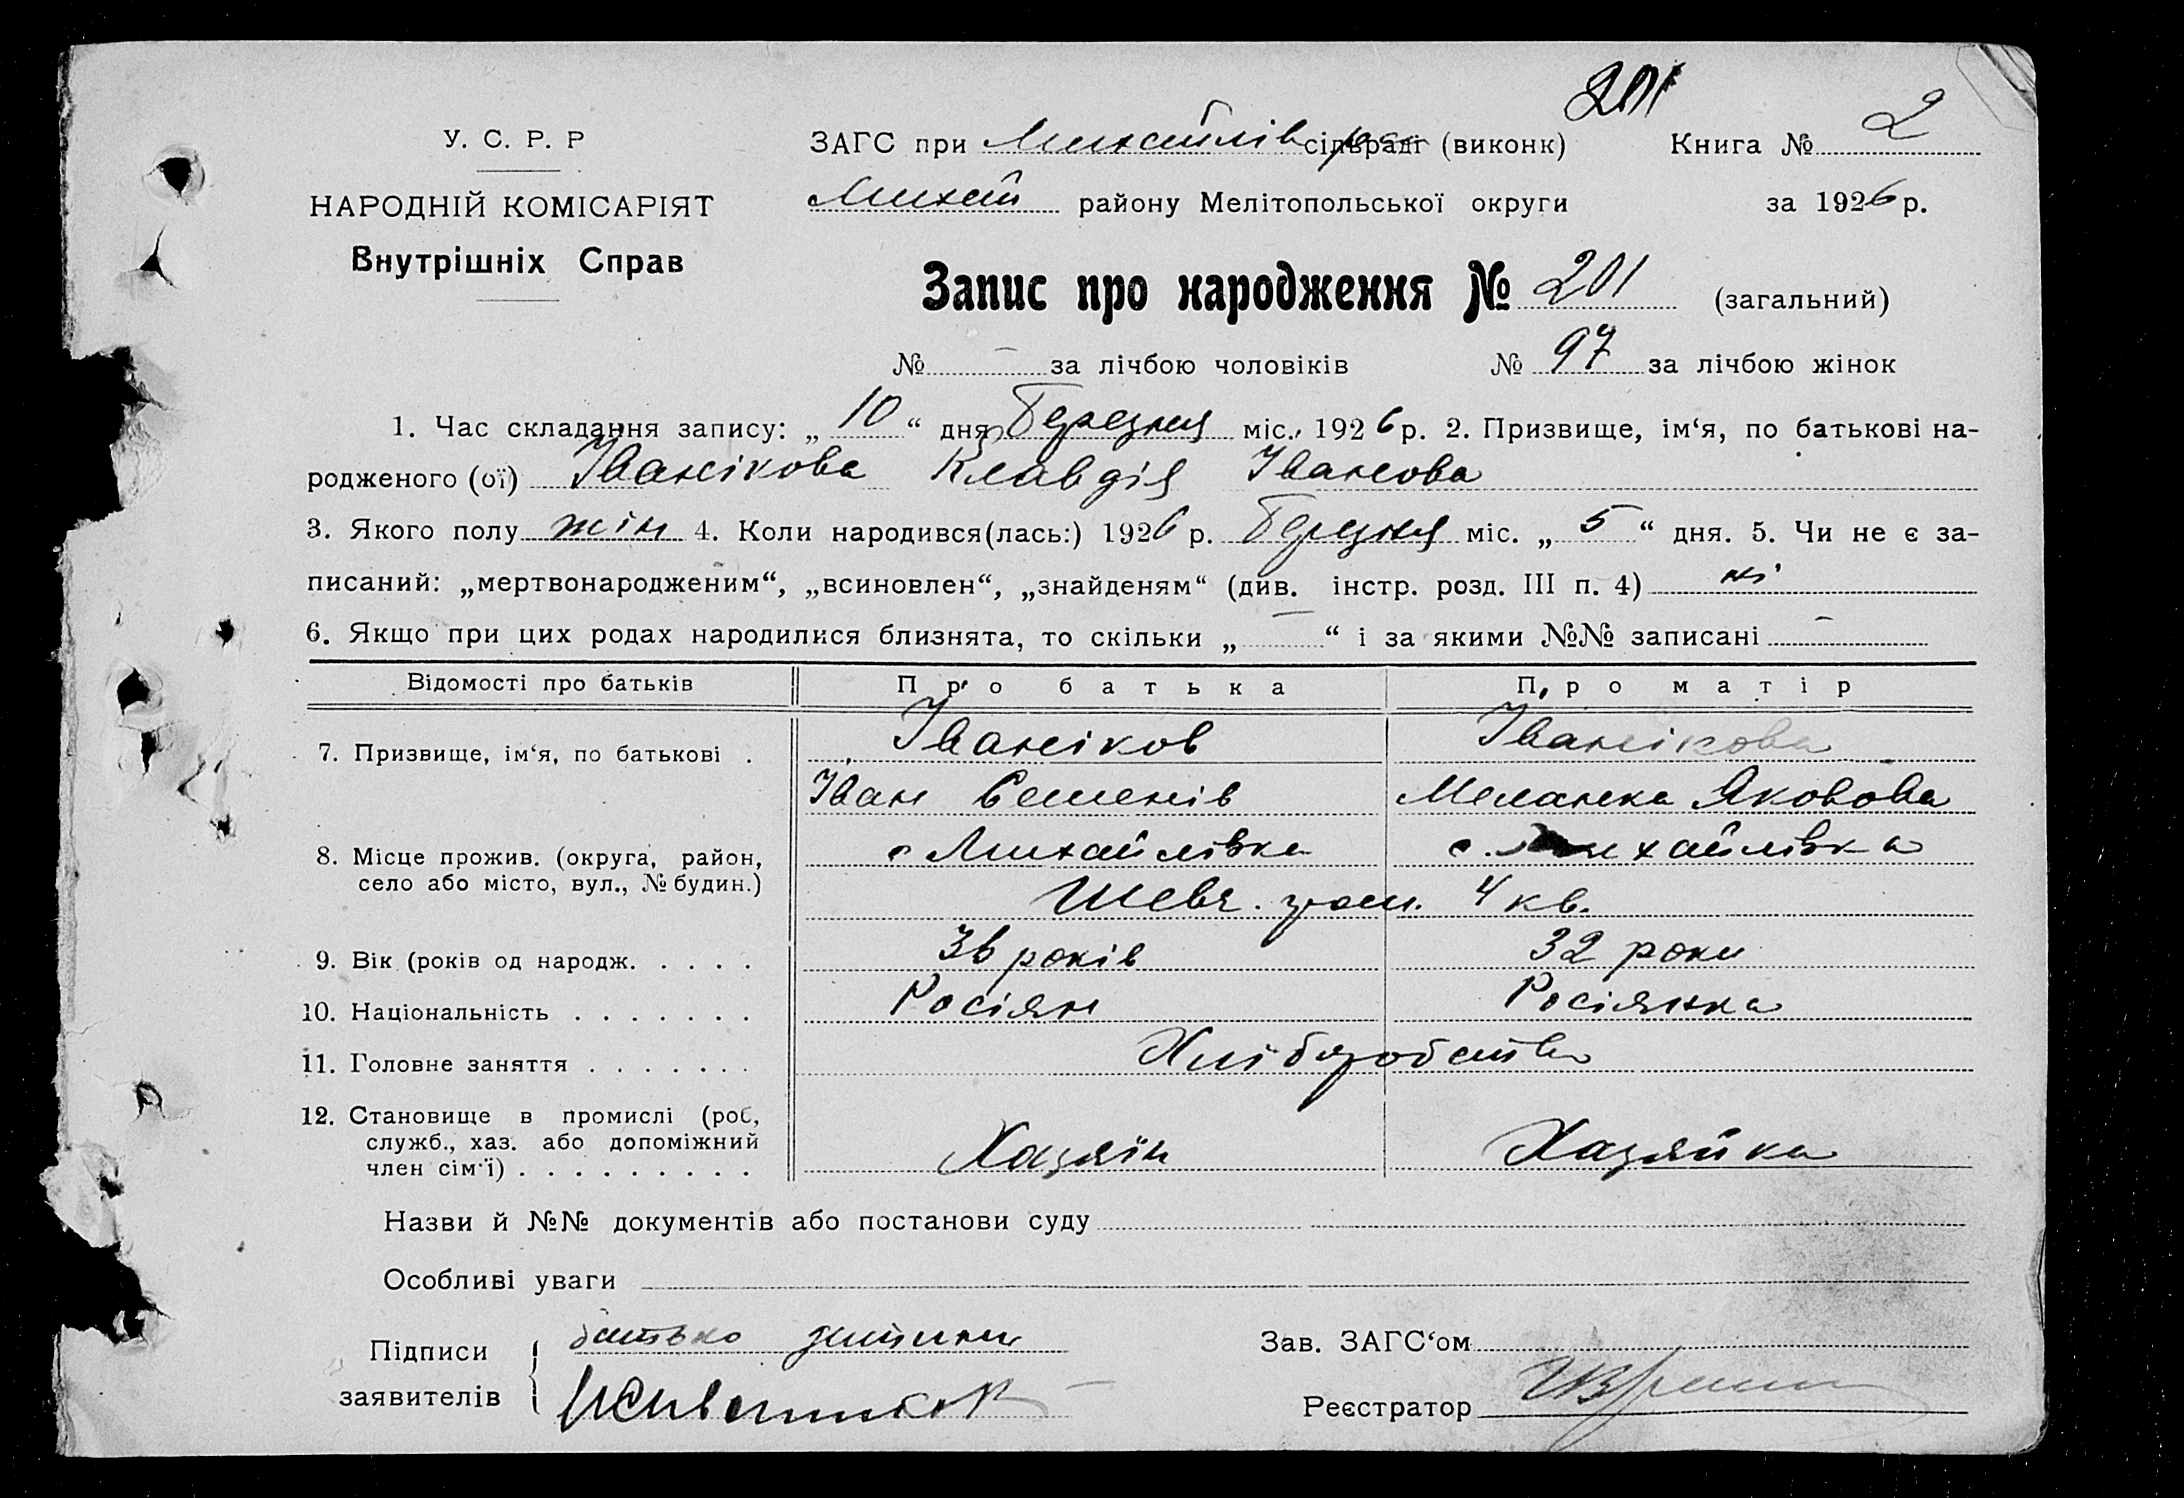 201
У. С. Р. Р
ЗАГС при Михайлів сільраді (виконк) Книга № 2
НАРОДНІЙ КОМІСАРІЯТ
Михай району Мелітопольської округи за 1926 р.
Внутрішніх Справ
Запис про народження № 201 (загальний)
№ — за лічбою чоловіків № 97 за лічбою жінок
1. Час складання запису: „ 10 “ дня Березня міс., 1926 р. 2. Призвище, ім‘я, по батькові на-
родженого (ої) Іванікова Клавдія Іванова
3. Якого полу жін 4. Коли народився(лась:) 1926 р. Березня міс. „ 5 “ дня. 5. Чи не є за-
писаний: „мертвонародженим“, „всиновлен“, „знайденям“ (див. інстр. розд. III п. 4) ні
6. Якщо при цих родах народилися близнята, то скільки „ — “ і за якими №№ записані —
Відомості про батьків Про батька Про матір
7. Призвище, ім‘я, по батькові . Іваніков Іванікова
Іван Семенів Меланка Яковова
8. Місце прожив. (округа, район, с Михайлівка с. Михайлівка
село або місто, вул., № будин.) Шевч. гром. 4 кв.
9. Вік (років од народж. . . . . 36 років 32 роки
10. Національність . . . . . . . Росіян Росіянка
11. Головне заняття . . . . . . . Хліборобство
12. Становище в промислі (роб,
служб., хаз. або допоміжний Хазяїн Хазяйка
член сім‘ї) . . . . . . . . .
Назви й №№ документів або постанови суду
Особливі уваги
Підписи батько дитини Зав. ЗАГС‘ом
заявителів Реєстратор